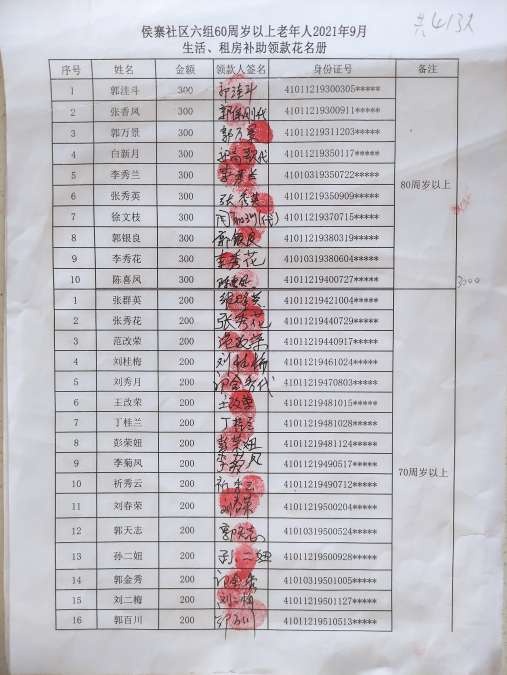 共413人
侯寨社区六组60周岁以上老年人2021年9月
生活、租房补助领款花名册
序号 姓名 金额 领款人签名 身份证号 备注
1 郭洼斗 300 郭洼斗 41011219300305*****
2 张香风 300 41011219300911*****
3 郭万景 300 郭万景 41011219311203*****
4 白新月 300 41011219350117*****
5 李秀兰 300 李秀兰 41010319350722*****
6 张秀英 300 张秀英 41011219350909*****
7 徐文枝 300 41011219370715*****
8 郭银良 300 郭银良 41011219380319*****
9 李秀花 300 李秀花 41010319380604*****
10 陈喜风 300 41011219400727*****
80周岁以上
3000
1 张群英 200 41011219421004*****
2 张秀花 200 张秀花 41011219440729*****
3 范改荣 200 范改荣 41011219440917*****
4 刘桂梅 200 41011219461024*****
5 刘秀月 200 41011219470803*****
6 王改荣 200 王改荣 41011219481015*****
7 丁桂兰 200 丁桂兰 41011219481028*****
8 彭荣妞 200 彭荣妞 41011219481124*****
9 李菊风 200 41011219490517*****
10 祈秀云 200 41011219490712*****
11 刘春荣 200 41011219500204*****
12 郭天志 200 郭天志 41010319500524*****
13 孙二妞 200 孙二妞 41011219500928*****
14 郭金秀 200 郭金秀 41010319501005*****
15 刘二梅 200 刘二梅 41011219501127*****
16 郭百川 200 41011219510513*****
70周岁以上